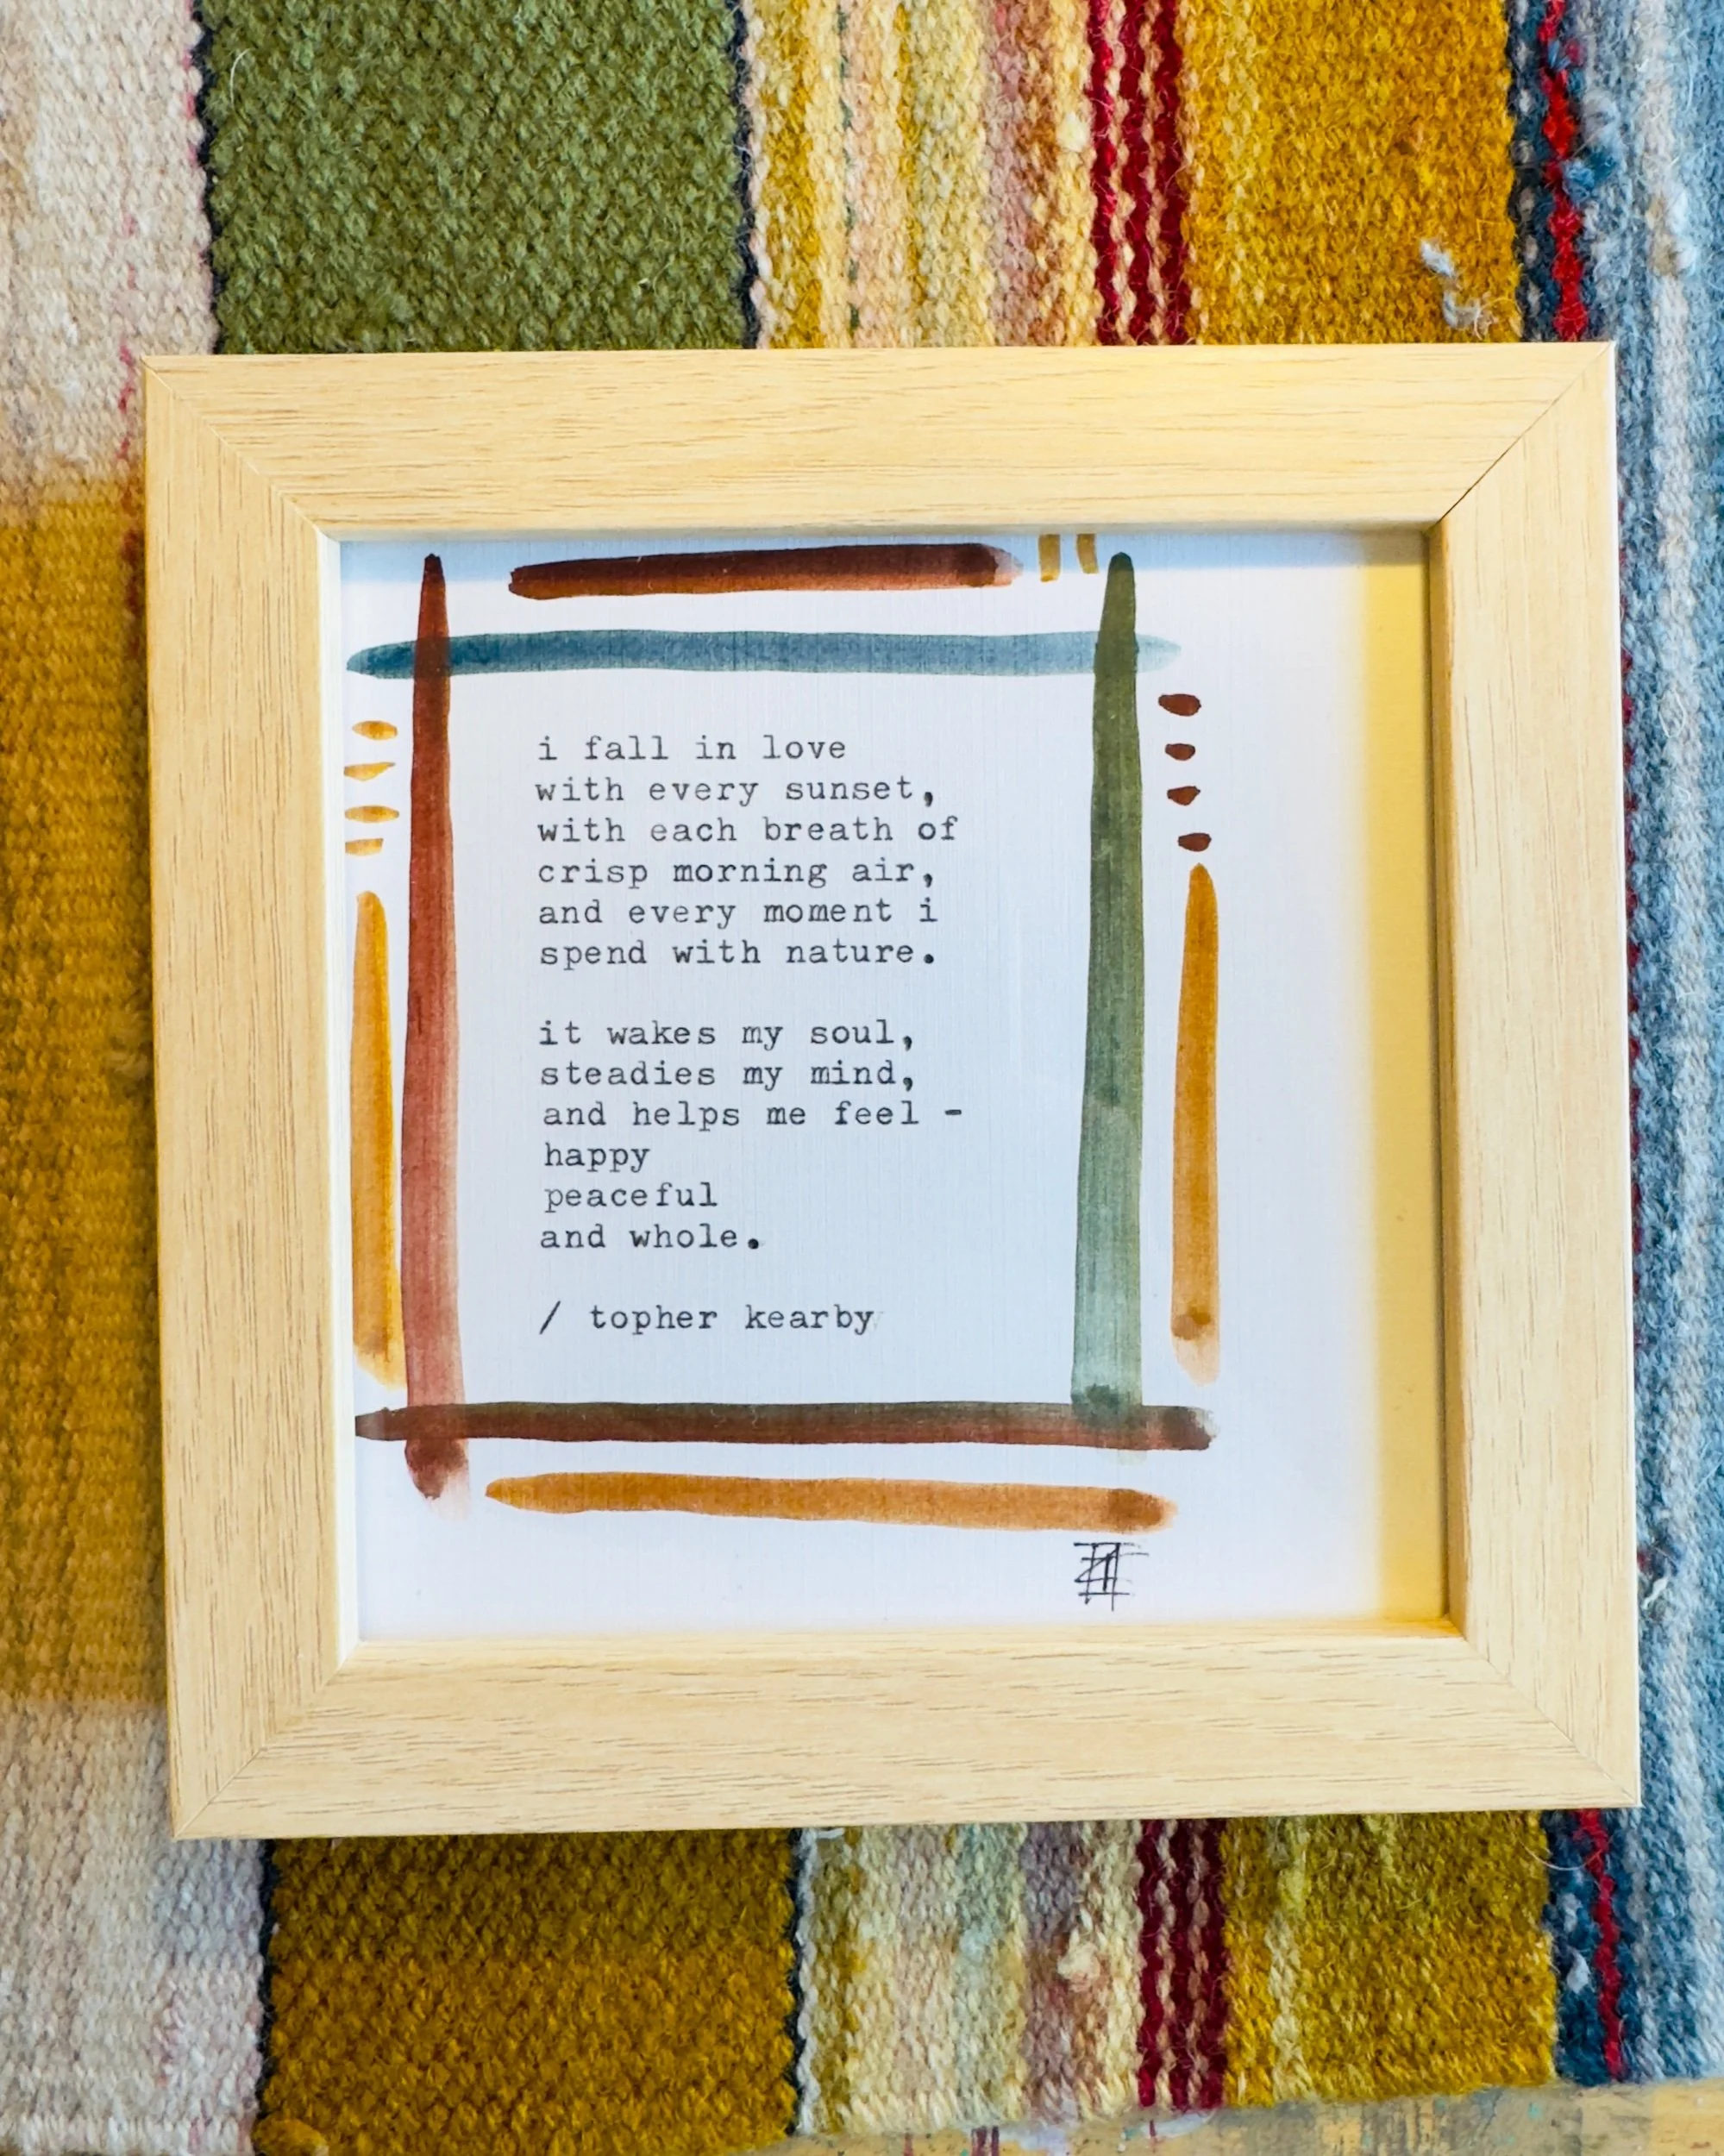 i fall in love
with every sunset,
with each breath of
crisp morning air,
and every moment i
spend with nature.
it wakes my soul,
steadies my mind,
and helps me feel -
happy
peaceful
and whole.
/ topher kearby